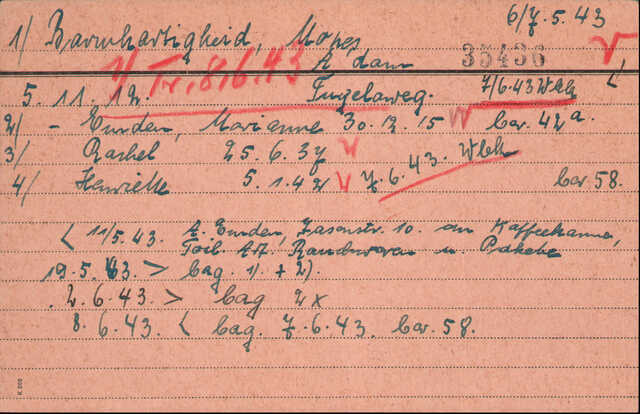 6/7.5.43
1/ Barmhartigheid, Mozes
35436
1/ Tr. 8/6.43
A'dam
5.11.12. Tugelaweg. 7/6.43 Wbk
2/ - Emden, Marianne 30.12.15 bar. 42a.
3/ Rachel 25.6.37
4/ Henriette 5.1.42 7.6.43. Wbk bar 58.
< 11/5.43. A. Emden, 10. Kaffeekanne,
Toil. Art. u. Pakete
19.5.43. > bag. 1) + 2).
2.6.43 > bag 2x
8.6.43. < bag. 7.6.43. bar. 58.